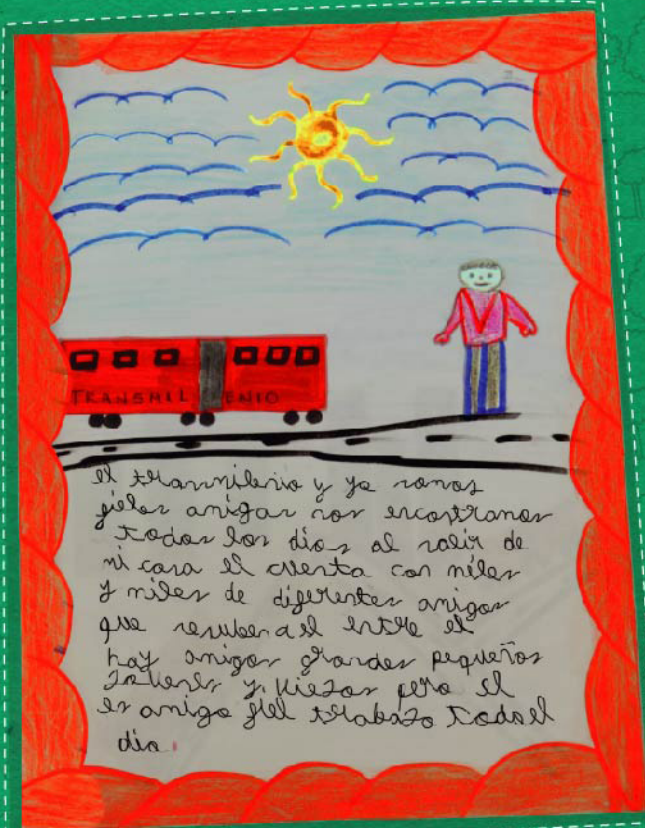 TRANSMILENIO
el transmilenio y yo somos
fieles amigos nos encontramos
todos los días al salir de
mi casa el cuenta con miles
y miles de diferentes amigos
que se suben a el entre el
hay amigos grandes pequeños
Jovenes y viejos pero el
es amigo fiel trabajo todo el
dia